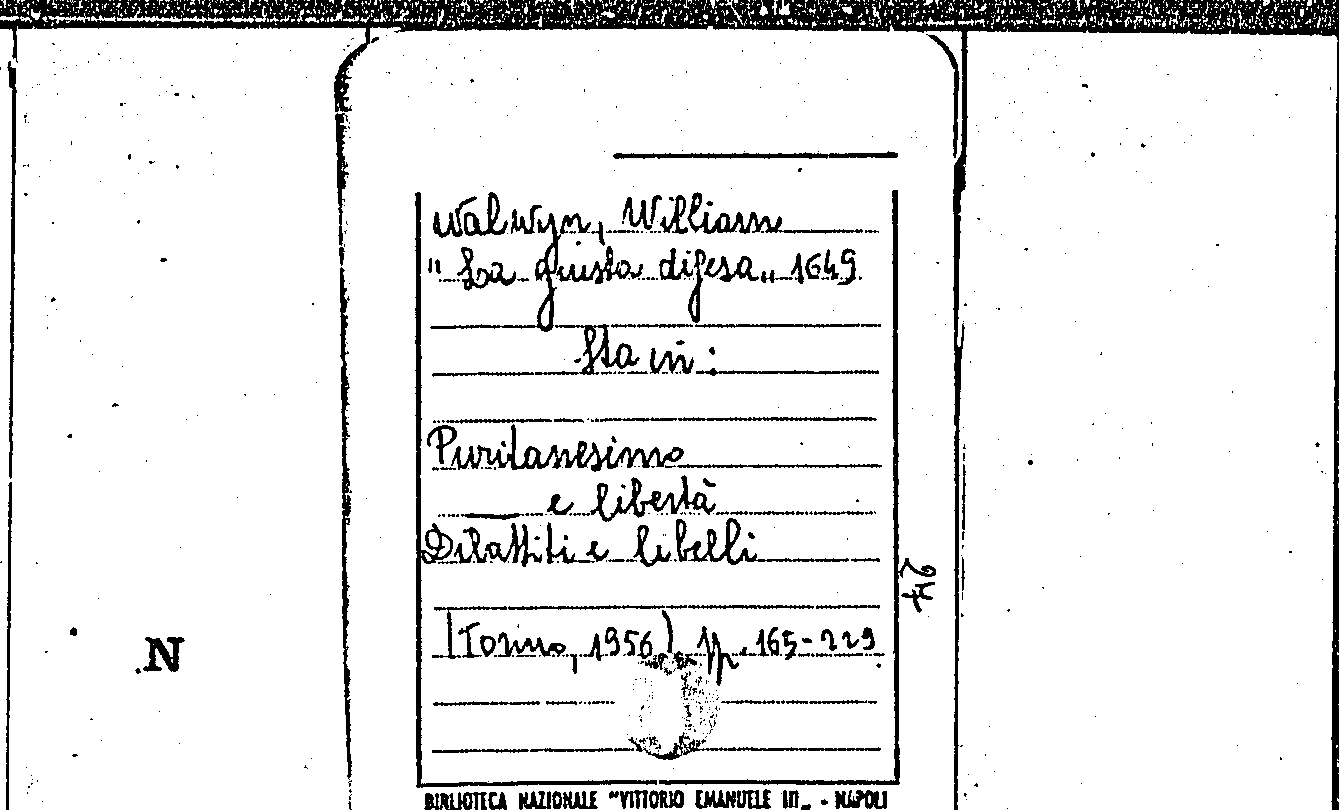 Walwyn, William
"La giusta difesa„ 1649
Sta in:
Puritanesimo
e libertà
Dibattiti e libelli
(Torino, 1956) pp. 165-229
24
N
BIBLIOTECA NAZIONALE "VITTORIO EMANUELE III„ - NAPOLI